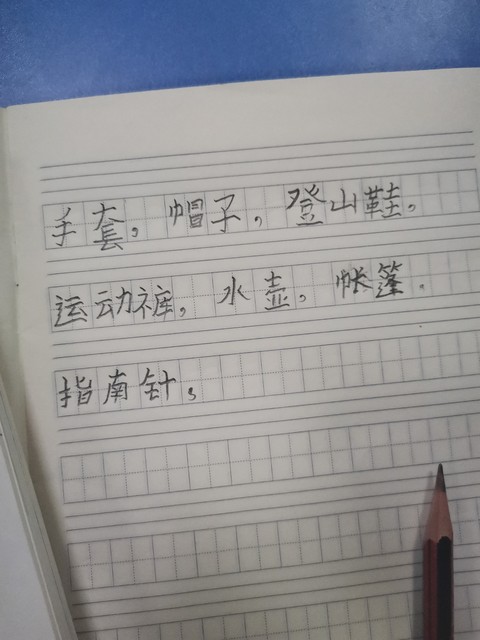 手套，帽子，登山鞋。
运动裤，水壶，帐篷.
指南针。